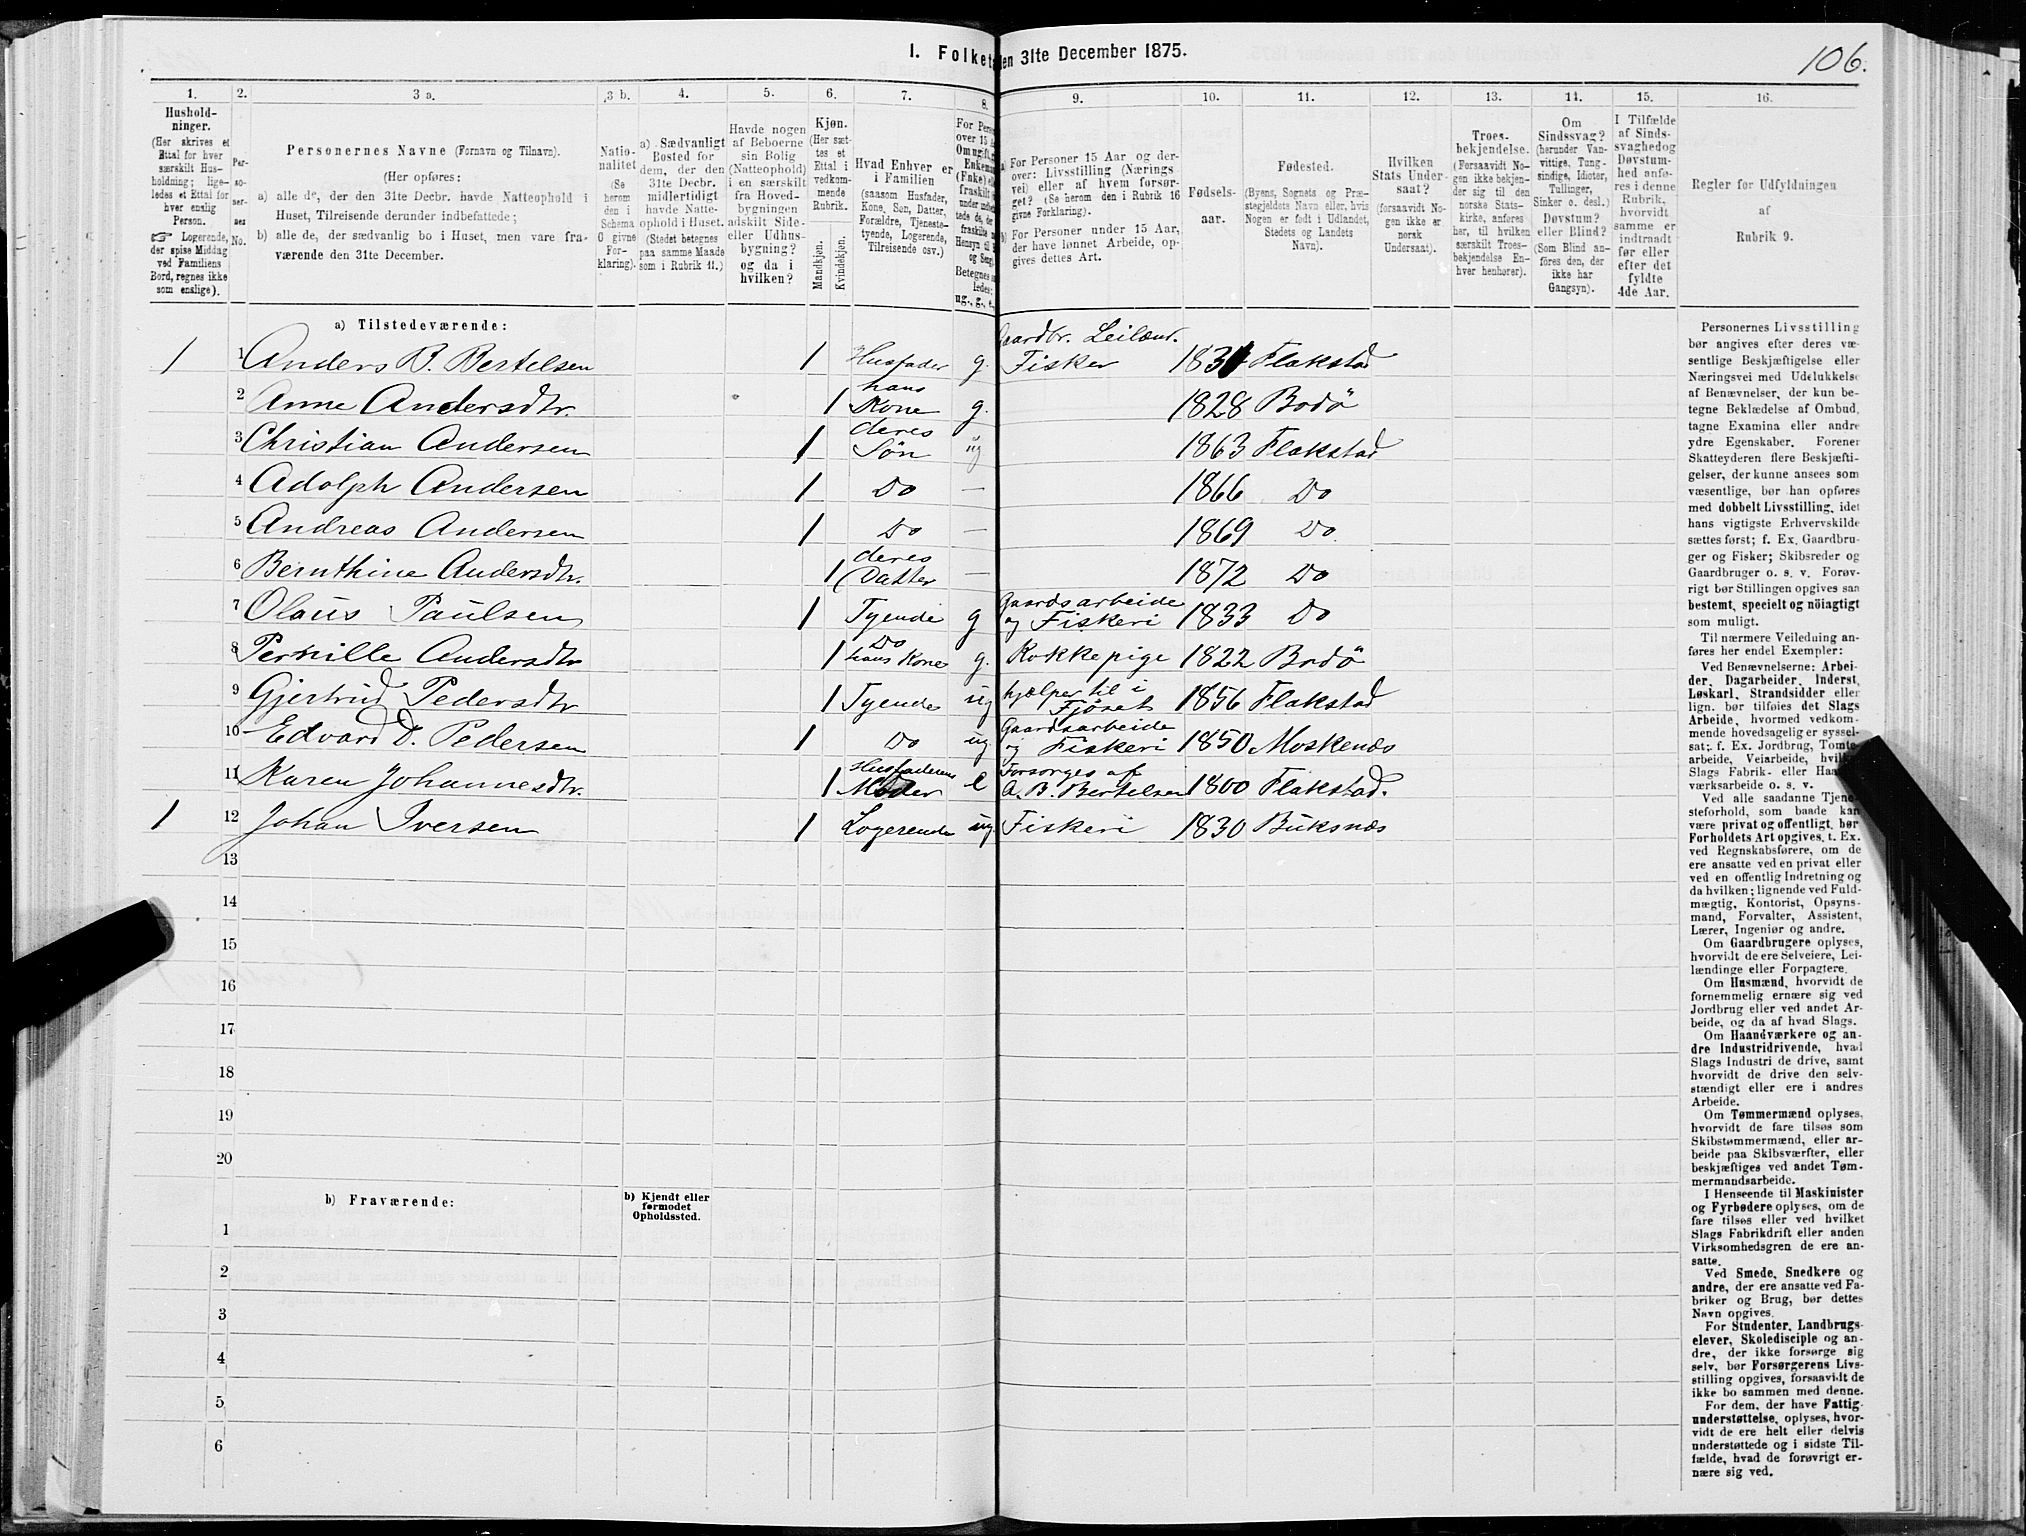 I. Folket en 31te December 1875.
106.
1. 2. 3 a. 3 b. 4. 5. 6. 7. 8. 9. 10. 11. 12. 13. 14. 15. 16.
Hushold-
ninger.
(Her skrives et
Ettal for hver
særskilt Hus-
holdning; lige-
ledes et Ettal for
hver enslig
Person.
☞ Logerende,
der spise Middag
ved Familiens
Bord, regnes ikke
som enslige).
Per-
so-
ner-
nes
No.
Personernes Navne (Fornavn og Tilnavn).
(Her opføres:
a) alle de, der den 31te Decbr. havde Natteophold i
Huset, Tilreisende derunder indbefattede;
b) alle de, der sædvanlig bo i Huset, men vare fra-
værende den 31te December.
Natio-
nalitet
(Se
herom
den i
Schema
C givne
For-
klaring).
a) Sædvanligt
Bosted for
dem, der den
31te Decbr.
midlertidigt
havde Natte-
ophold i Huset.
(Stedet betegnes
paa samme Maade
som i Rubrik 11.)
Havde nogen
af Beboerne
sin Bolig
(Natteophold)
i en særskilt
fra Hoved-
bygningen
adskilt Side-
eller Udhus-
bygning?
og da i
hvilken?
Kjøn.
(Her sæt-
tes et
Ettal i
vedkom-
mende
Rubrik.
Mandkjøn.
Kvindekjøn.
Hvad Enhver er
i Familien
(saasom Husfader,
Kone, Søn, Datter,
Forældre, Tjeneste-
tyende, Logerende,
Tilreisende osv.)
For Pers
over 15 A
Om ugift, 
Enkema
(Fnke) e
fraskilt
under indbe
tede de, der
fraskilte
Hensyn til
og Seng
Betegnes s
ledes:
ug., g., e.
a) For Personer 15 Aar og der-
over: Livsstilling (Nærings
vei) eller af hvem forsør-
get? (Se herom den i Rubrik 16
givne Forklaring).
b) For Personer under 15 Aar,
der have lønnet Arbeide, op-
gives dettes Art.
Fødsels-
aar.
Fødested.
(Byens, Sognets og Præ-
stegjeldets Navn eller, hvis
Nogen er født i Udlandet,
Stedets og Landets
Navn).
Hvilken
Stats Under-
saat?
(forsaavidt No-
gen ikke er
norsk
Undersaat).
Troes-
bekjendelse.
(Forsaavidt No-
gen ikke bekjen-
der sig til den
norske Stats-
kirke, anføres
her, til hvilken
særskilt Troes-
bekjendelse En-
hver henhører).
Om
Sindssvag?
(herunder Van-
vittige, Tung-
sindige, Idioter,
Tullinger,
Sinker o. desl.)
Døvstum?
eller Blind?
(Som Blind an-
føres den, der
ikke har
Gangsyn).
I Tilfælde
af Sinds-
svaghedog
Døvstum-
hed anfø-
res i denne
Rubrik,
hvorvidt
samme er
indtraadt
før eller
efter det
fyldte
4de Aar.
Regler for Udfyldningen
af
Rubrik 9.
a) Tilstedeværende:
Gaardbr. Leilænd.
1 1 Anders B. Bertelsen 1 Husfader g. Fisker 1831 Flakstad
2 Anne Andersdtr. 1 hans Kone g. 1828 Bodö
3 Christian Andersen 1 deres Søn ug 1863 Flakstad
4 Adolph Andersen 1 Do — 1866 Do
5 Andreas Andersen 1 Do — 1869 Do
6 Bernthine Andersdtr. 1 deres Datter — 1872 Do
7 Olaus Paulsen 1 Tyende g Gaardsarbeide og Fiskeri 1833 Do
8 Pernille Andersdtr 1 Do hans Kone g. Kokkepige 1822 Bodö
9 Gjertrud Pedersdtr 1 Tyende ug hjælper til i Fjöset 1856 Flakstad
10 Edvard D. Pedersen 1 Do ug. Gaardsarbeide og Fiskeri 1850 Moskenæs
11 Karen Johannesdtr. 1 Husfaderens Moder e Forsorges af A. B. Bertelsen 1800 Flakstad.
1 12 Johan Iversen 1 Logerende ug. Fiskeri 1830 Buksnæs
13
14
15
16
17
18
19
20
b) Fraværende:
b) Kjendt eller
formodet
Opholdssted.
1
2
3
4
5
6
Personernes Livsstilling
bør angives efter deres væ-
sentlige Beskjæftigelse eller
Næringsvei med Udelukkelse
af Benævnelser, der kun be-
tegne Beklædelse af Ombud,
tagne Examina eller andre
ydre Egenskaber. Forener
Skatteyderen flere Beskjæfti-
gelser, der kunne ansees som
væsentlige, bør han opføres
med dobbelt Livsstilling, idet
hans vigtigste Erhvervskilde
sættes først; f. Ex. Gaardbru-
ger og Fisker; Skibsreder og
Gaardbruger o. s. v. Forøv-
rigt bør Stillingen opgives saa
bestemt, specielt og nöiagtigt
som muligt.
Til nærmere Veiledning an-
føres her endel Exempler:
Ved Benævnelserne: Arbei-
der, Dagarbeider, Inderst,
Løskarl, Strandsidder eller
lign. bør tilføies det Slags
Arbeide, hvormed vedkom-
mende hovedsagelig er syssel-
sat; f. Ex. Jordbrug, Tomte-
arbeide, Veiarbeide, hvilket
Slags Fabrik- eller Haand-
værksarbeide o. s. v.
Ved alle saadanne Tjene-
steforhold, som baade kan
være privat og offentligt, bør
Forholdets Art opgives, t. Ex.
ved Regnskabsførere, om de
ere ansatte ved en privat eller
ved en offentlig Indretning og
da hvilken; lignende ved Fuld-
mægtig, Kontorist, Opsyns-
mand, Forvalter, Assistent,
Lærer, Ingeniør og andre.
Om Gaardbrugere oplyses,
hvorvidt de ere Selveiere, Lei-
lændinge eller Forpagtere.
Om Husmænd, hvorvidt de
fornemmelig ernære sig ved
Jordbrug eller ved andet Ar-
beide, og da af hvad Slags.
Om Haandværkere og an-
dre Industridrivende, hvad
Slags Industri de drive, samt
hvorvidt de drive den selv-
stændigt eller ere i andres
Arbeide.
Om Tømmermænd oplyses,
hvorvidt de fare tilsøs som
Skibstømmermænd, eller ar-
beide paa Skibsværfter, eller
beskjæftiges ved andet Tøm-
mermandsarbeide.
I Henseende til Maskinister
og Fyrbødere oplyses, om de
fare tilsøs eller ved hvilket
Slags Fabrikdrift eller anden
Virksomhedsgren de ere an-
satte.
Ved Smede, Snedkere og
andre, der ere ansatte ved Fa-
briker og Brug, bør dettes
Navn opgives.
For Studenter, Landbrugs-
elever, Skoledisciple og an-
dre, der ikke forsørge sig
selv, bør Forsørgerens Livs-
stilling opgives, forsaavidt de
ikke bo sammen med denne.
For dem, der have Fattig-
understøttelse, oplyses, hvor-
vidt de ere helt eller delvis
understøttede og i sidste Til-
fælde, hvad de forøvrigt er-
nære sig ved.